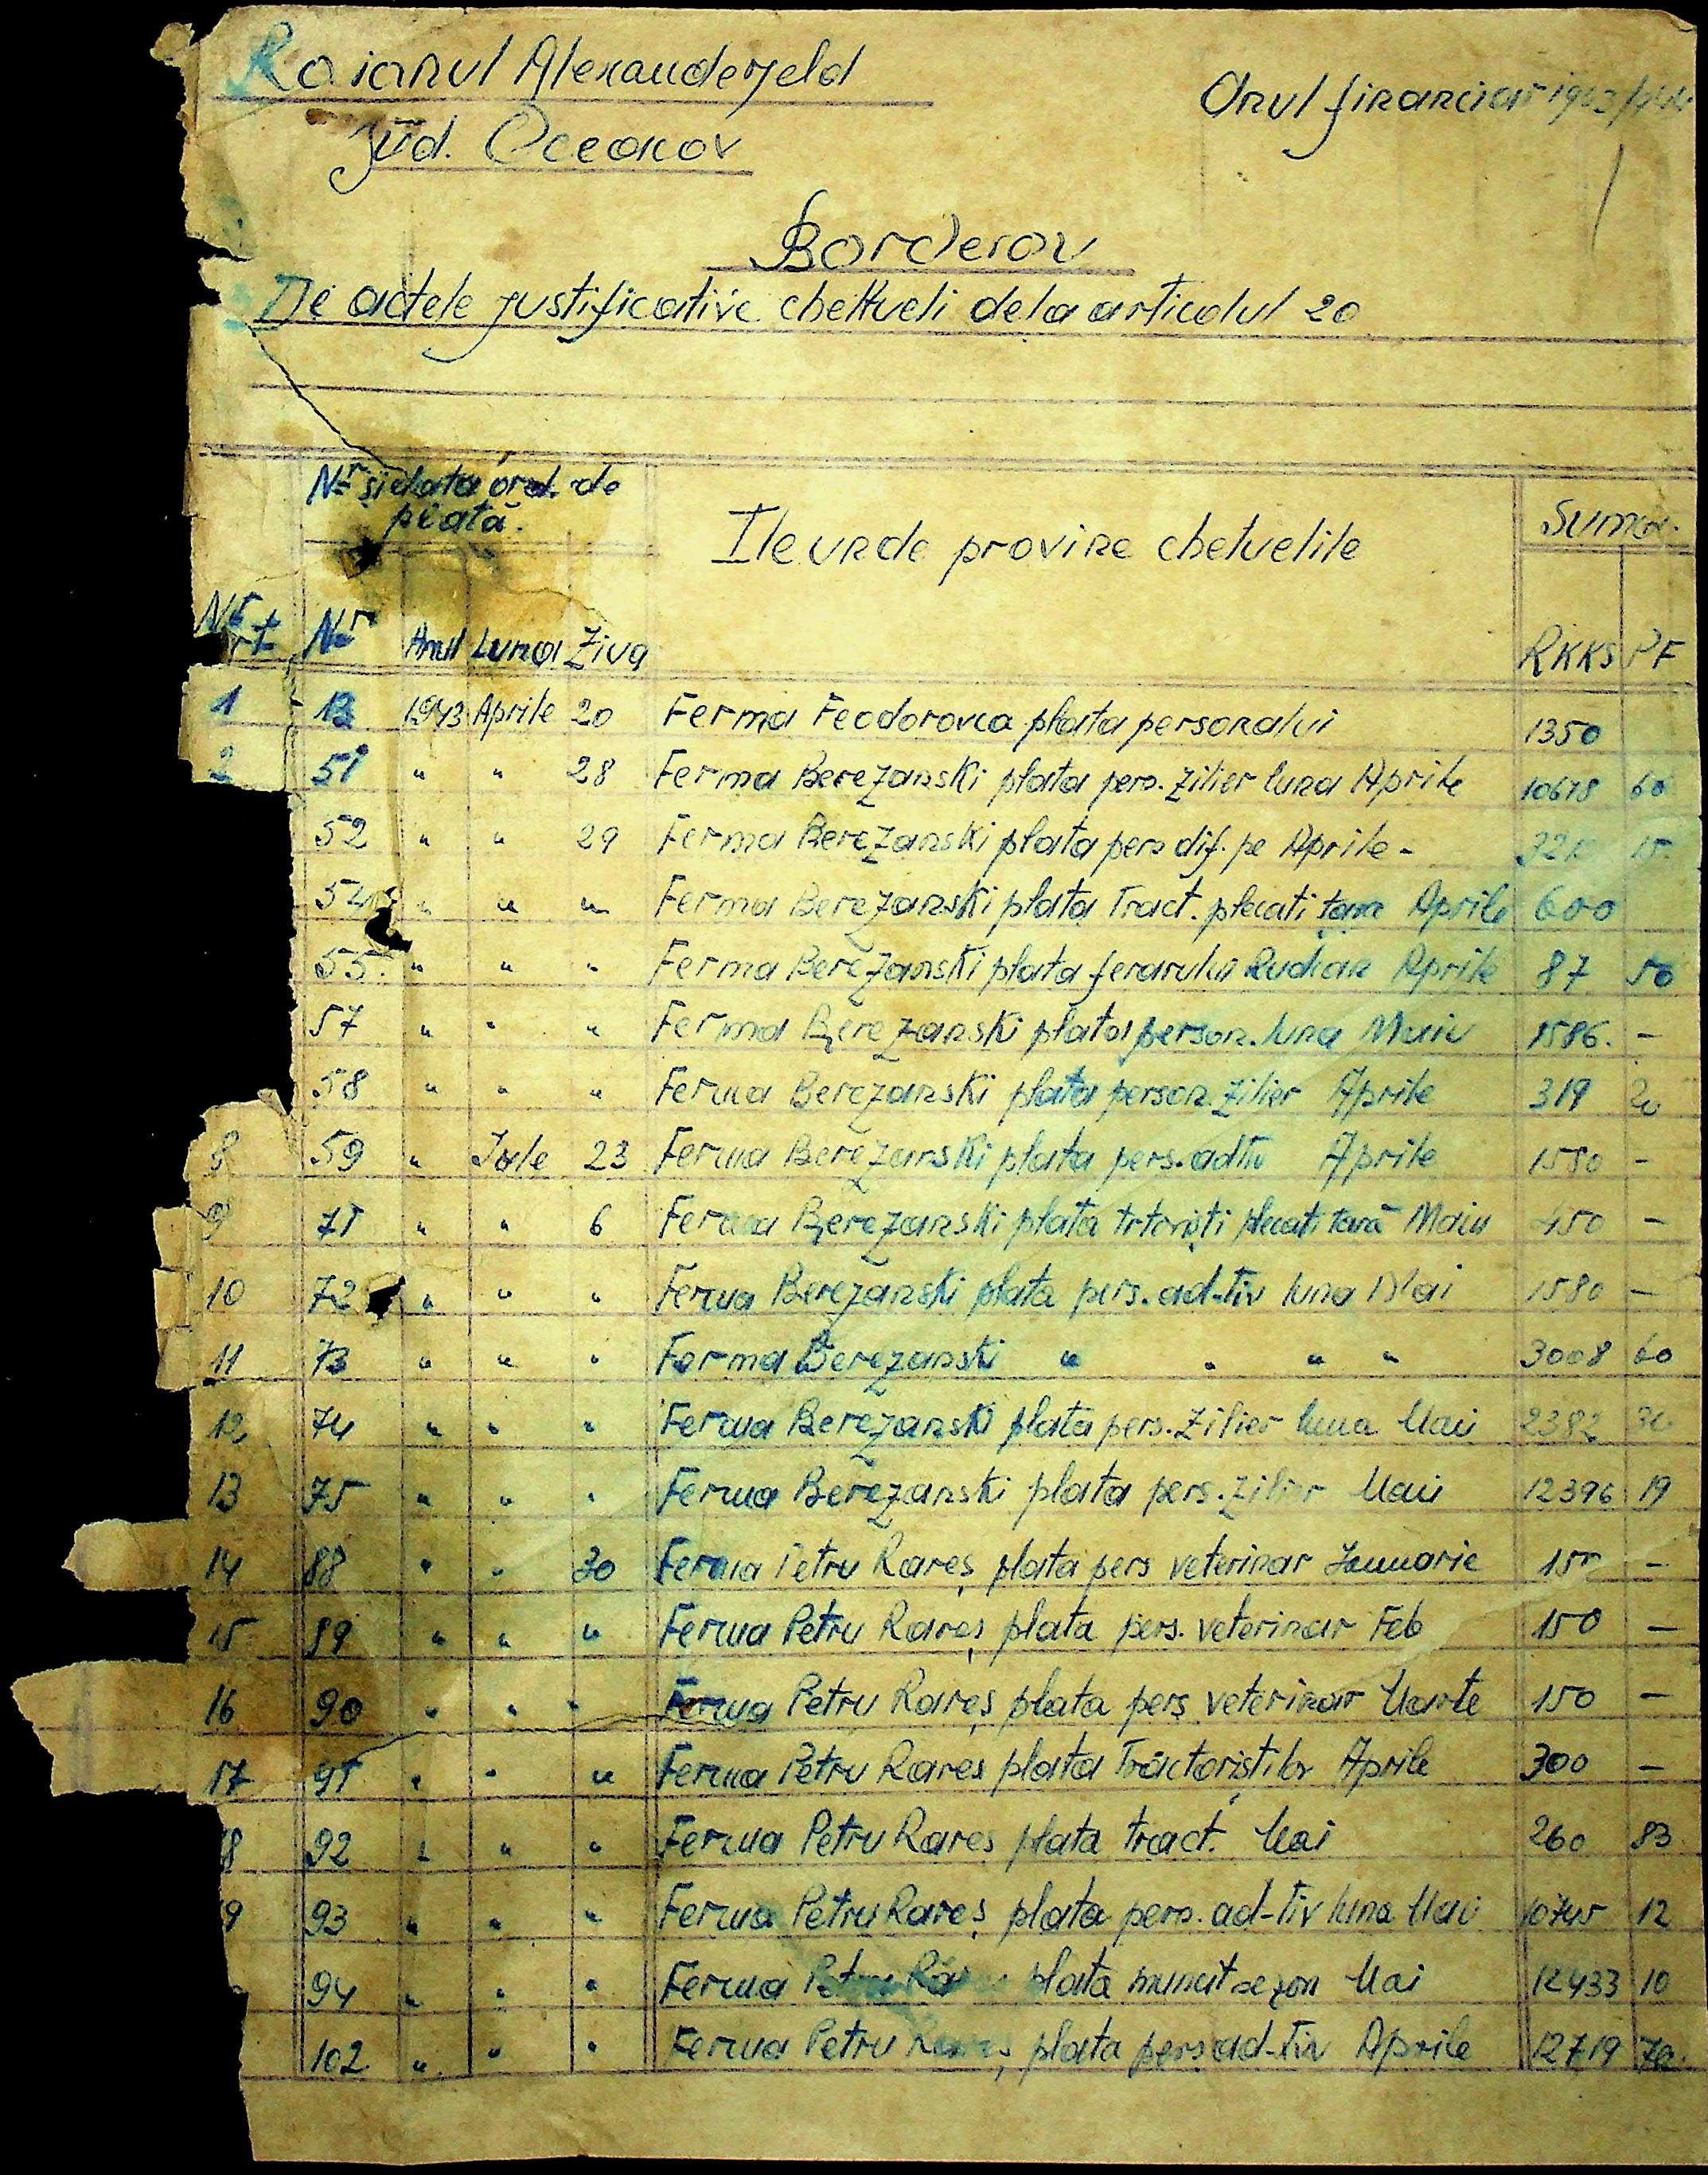 Raianul Alexanderfeld
Anul financiar 1943/944
Jud. Oceacov
Borderou
De actele justificative chettueli dela articolul 20
Nr și data ord. de
plată.
Ile unde provine chetuelile
Suma.
Nr
crt Nr Anul Luna Ziua RKKS PF
1 13 1943 Aprile 20 Ferma Feodorovca plata personalui 1350
2 51 " " 28 Ferma Berezanski plata pers. zilier luna Aprile 10678 60
52 " " 29 Ferma Berezanski plata pers dif. pe Aprile -
54 " " " Ferma Berezanski plata Tract. plecati țara Aprile 600
55 " " " Ferma Berezanski plata ferarului Rudian Aprile 87 50
57 " " " Ferma Berezanski plata person. luna Maiu 1586. -
58 " " " Ferma Berezanski plata person. zilier Aprile 319 20
8 59 " 23 Ferma Berezanski plata pers. adtiv Aprile 1580 -
9 71 " " 6 Ferma Berezanski plata trtoriști plecati țară Maiu 450 -
10 72 " " " Ferma Berezanski plata pers. ad-tiv luna Mai 1580 -
11 73 " " " Ferma Berezanski " " " " 3008 60
12 74 " " " Ferma Berezanski plata pers. zilier luna Mai 2382
13 75 " " " Ferma Berezanski plata pers. zilier Maiu 12396 19
14 88 " " 30 Ferma Petru Rareș plata pers veterinar Ianuarie 150 -
15 89 " " " Ferma Petru Rareș plata pers. veterinar Feb 150 -
16 90 " " " Ferma Petru Rareș plata pers veterinar Marte 150 -
17 91 " " " Ferma Petru Rares plata Tractoriștilor Aprile 300 -
8 92 " " " Ferma Petru Rares plata tract. Mai 260 83
9 93 " " " Ferma Petru Rareș plata pers. ad-tiv luna Mai 10745 12
94 " " " Ferma Petru Rareș plata muncit sezon Mai 12433 10
102 " " " Ferma Petru Rareș plata pers ad-tiv Aprile 12719 70.